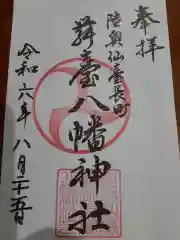 奉拝
陸奥仙台長町
舞臺八幡神社
令和六年八月二十五日